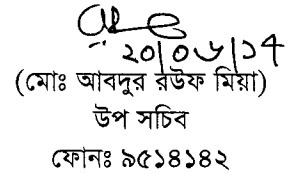 ২০/০৬/১৭
(মোঃ আবদুর রউফ মিয়া)
উপ সচিব
ফোনঃ ৯৫১৪১৪২